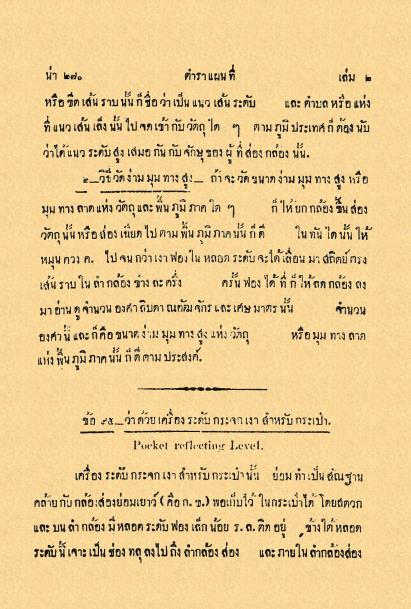 น่า ๒๗๐ ตำราแผนที่ เล่ม ๒
หรือ ขีด เส้น ราบ นั้น ก็ ชื่อ ว่า เป็น แนว เส้น ระดับ และ ตำบล หรือ แห่ง
ที่ แนว เส้น เล็ง นั้น ไป จด เข้า กับ วัตถุ ใด ๆ ตาม ภูมิ ประเทศ ก็ ต้อง นับ
ว่า ได้ แนว ระดับ สูง เสมอ กัน กับ จักษุ ของ ผู้ ที่ ส่อง กล้อง นั้น.
๔ _ วิธี วัด ง่าม มุม ทาง สูง _ ถ้า จะ วัด ขนาด ง่าม มุม ทาง สูง หรือ
มุม ทาง ลาด แห่ง วัตถุ และ พื้น ภูมิ ภาค ใด ๆ ก็ ให้ ยก กล้อง ขึ้น ส่อง
วัตถุ นั้น หรือ ส่อง เนียด ไป ตาม พื้น ภูมิ ภาค นั้น ก็ ดี ใน ทัน ใด นั้น ให้
หมุน ควง ค. ไป จน กว่า เงา ฟอง ใน หลอด ระดับ จะ ได้ เลื่อน มา สถิตย์ ตรง
เส้น ราบ ใน ลำ กล้อง ข้าง ละ ครึ่ง ครั้น ฟอง ได้ ที่ ก็ ให้ ลด กล้อง ลง
มา อ่าน ดู จำนวน องศา ลิบดา ณอัฒ จักร และ เศษ มาตร นั้น จำนวน
องศา นี้ และ ก็ คือ ขนาด ง่าม มุม ทาง สูง แห่ง วัตถุ หรือ มุม ทาง ลาด
แห่ง พื้น ภูมิ ภาค นั้น ก็ ดี ตาม ประสงค์.
ข้อ ๙๕ _ ว่า ด้วย เครื่อง ระดับ กระจก เงา สำหรับ กระเป๋า.
Pocket reflecting Level.
เครื่อง ระดับ กระจก เงา สำหรับ กระเป๋า นั้น ย่อม ทำ เป็น สัณฐาน
คล้าย กับ กล้อง ส่อง ย่อม เยาว์ ( คือ ก. ข.) พอ เก็บ ไว้ ใน กระเป๋า ได้ โดย สดวก
และ บน ลำ กล้อง มี หลอด ระดับ ฟอง เล็ก น้อย ร. ถ. ติด อยู่ ข้าง ใต้ หลอด
ระดับ นี้ เจาะ เป็น ช่อง ทลุ ลง ไป ถึง ลำ กล้อง ส่อง และ ภาย ใน ลำ กล้อง ส่อง